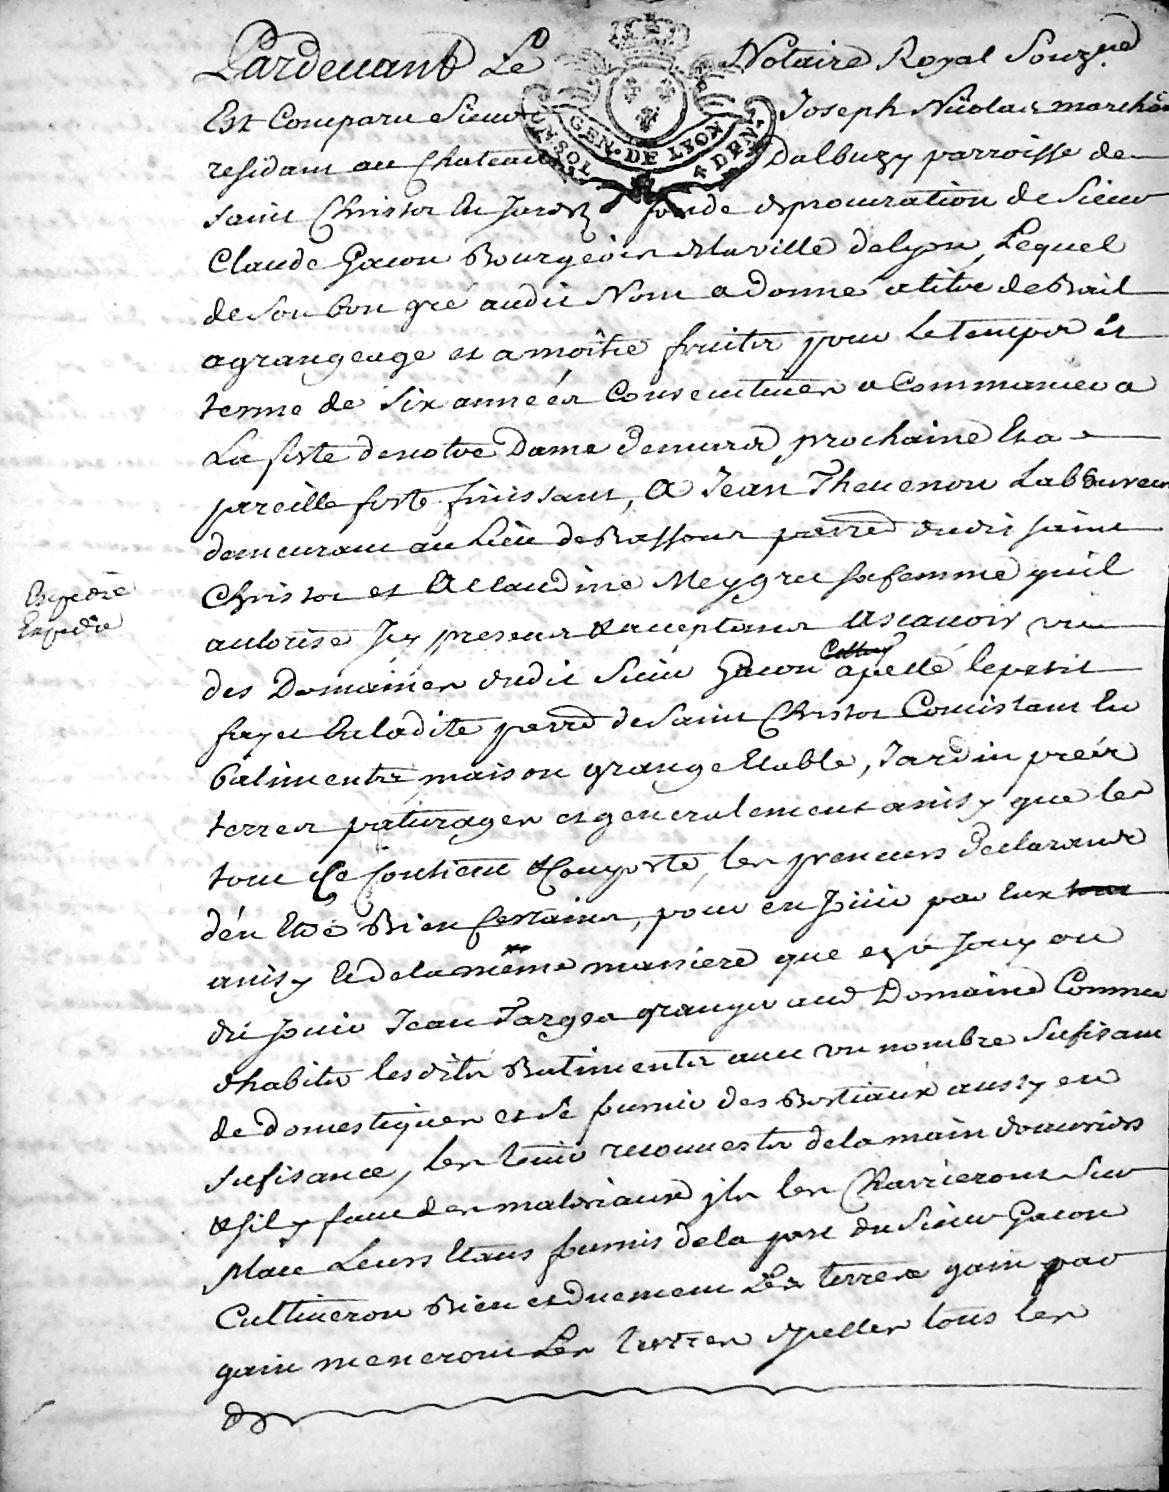 Pardevant Le Notaire Royal Souz.né
Est Comparu Sieur Joseph Nicolas march.d
residant au Chateau Dalbuzy parroisse de
GEN. DE LYON
UN SOL 4 DEN.
Saint Christot En Jarestz fondé de procuration de Sieur
Claude Gacon Bourgeois de la ville de lyon, Lequel
de Son bon gré audit Nom a donné a titre de Bail
a grangeage et a moitié fruits pour le temps et
terme de Six années Consecutives a Commancer a
La feste de notre Dame de mars prochaine Et a
pareille feste finissant, A Jean Thevenon Laboureur
demeurant au Lieu de Bassour parr.e dudit Saint
Christot et A Claudine Meygret sa femme quil
autorise Icy presents & acceptants Ascavoir un
des Domaines dudit Sieur Gacon apellé le petit
fayet En ladite parr.e de Saint Christot Consistant En
batiments, maison grange Etable, Jardin prés
terres paturages et generalement ainsy que le
tout Se Contient & Comporte, les preneurs declarants
d'en Etre Bien Certains, pour en Jouir par Eux tout
ainsy Et de la même maniere que a Jouy ou
du Jouir Jean Farges granger aud. Domaine Comme
d'habiter lesdits Batiments avec un nombre Sufisant
de domestiques et Se fournir des Bestiaux aussy en
Sufisance, les tenir recouverts de la main d'ouvriers
& Sil y faut des materiaux ils les Charrieront Sur
place Leurs Etans fournis de la part du Sieur Gacon
Cultiveron Bien et duement Les terres gain par
gain meneront Les terres & pelles tous les
Expedié
Expedié